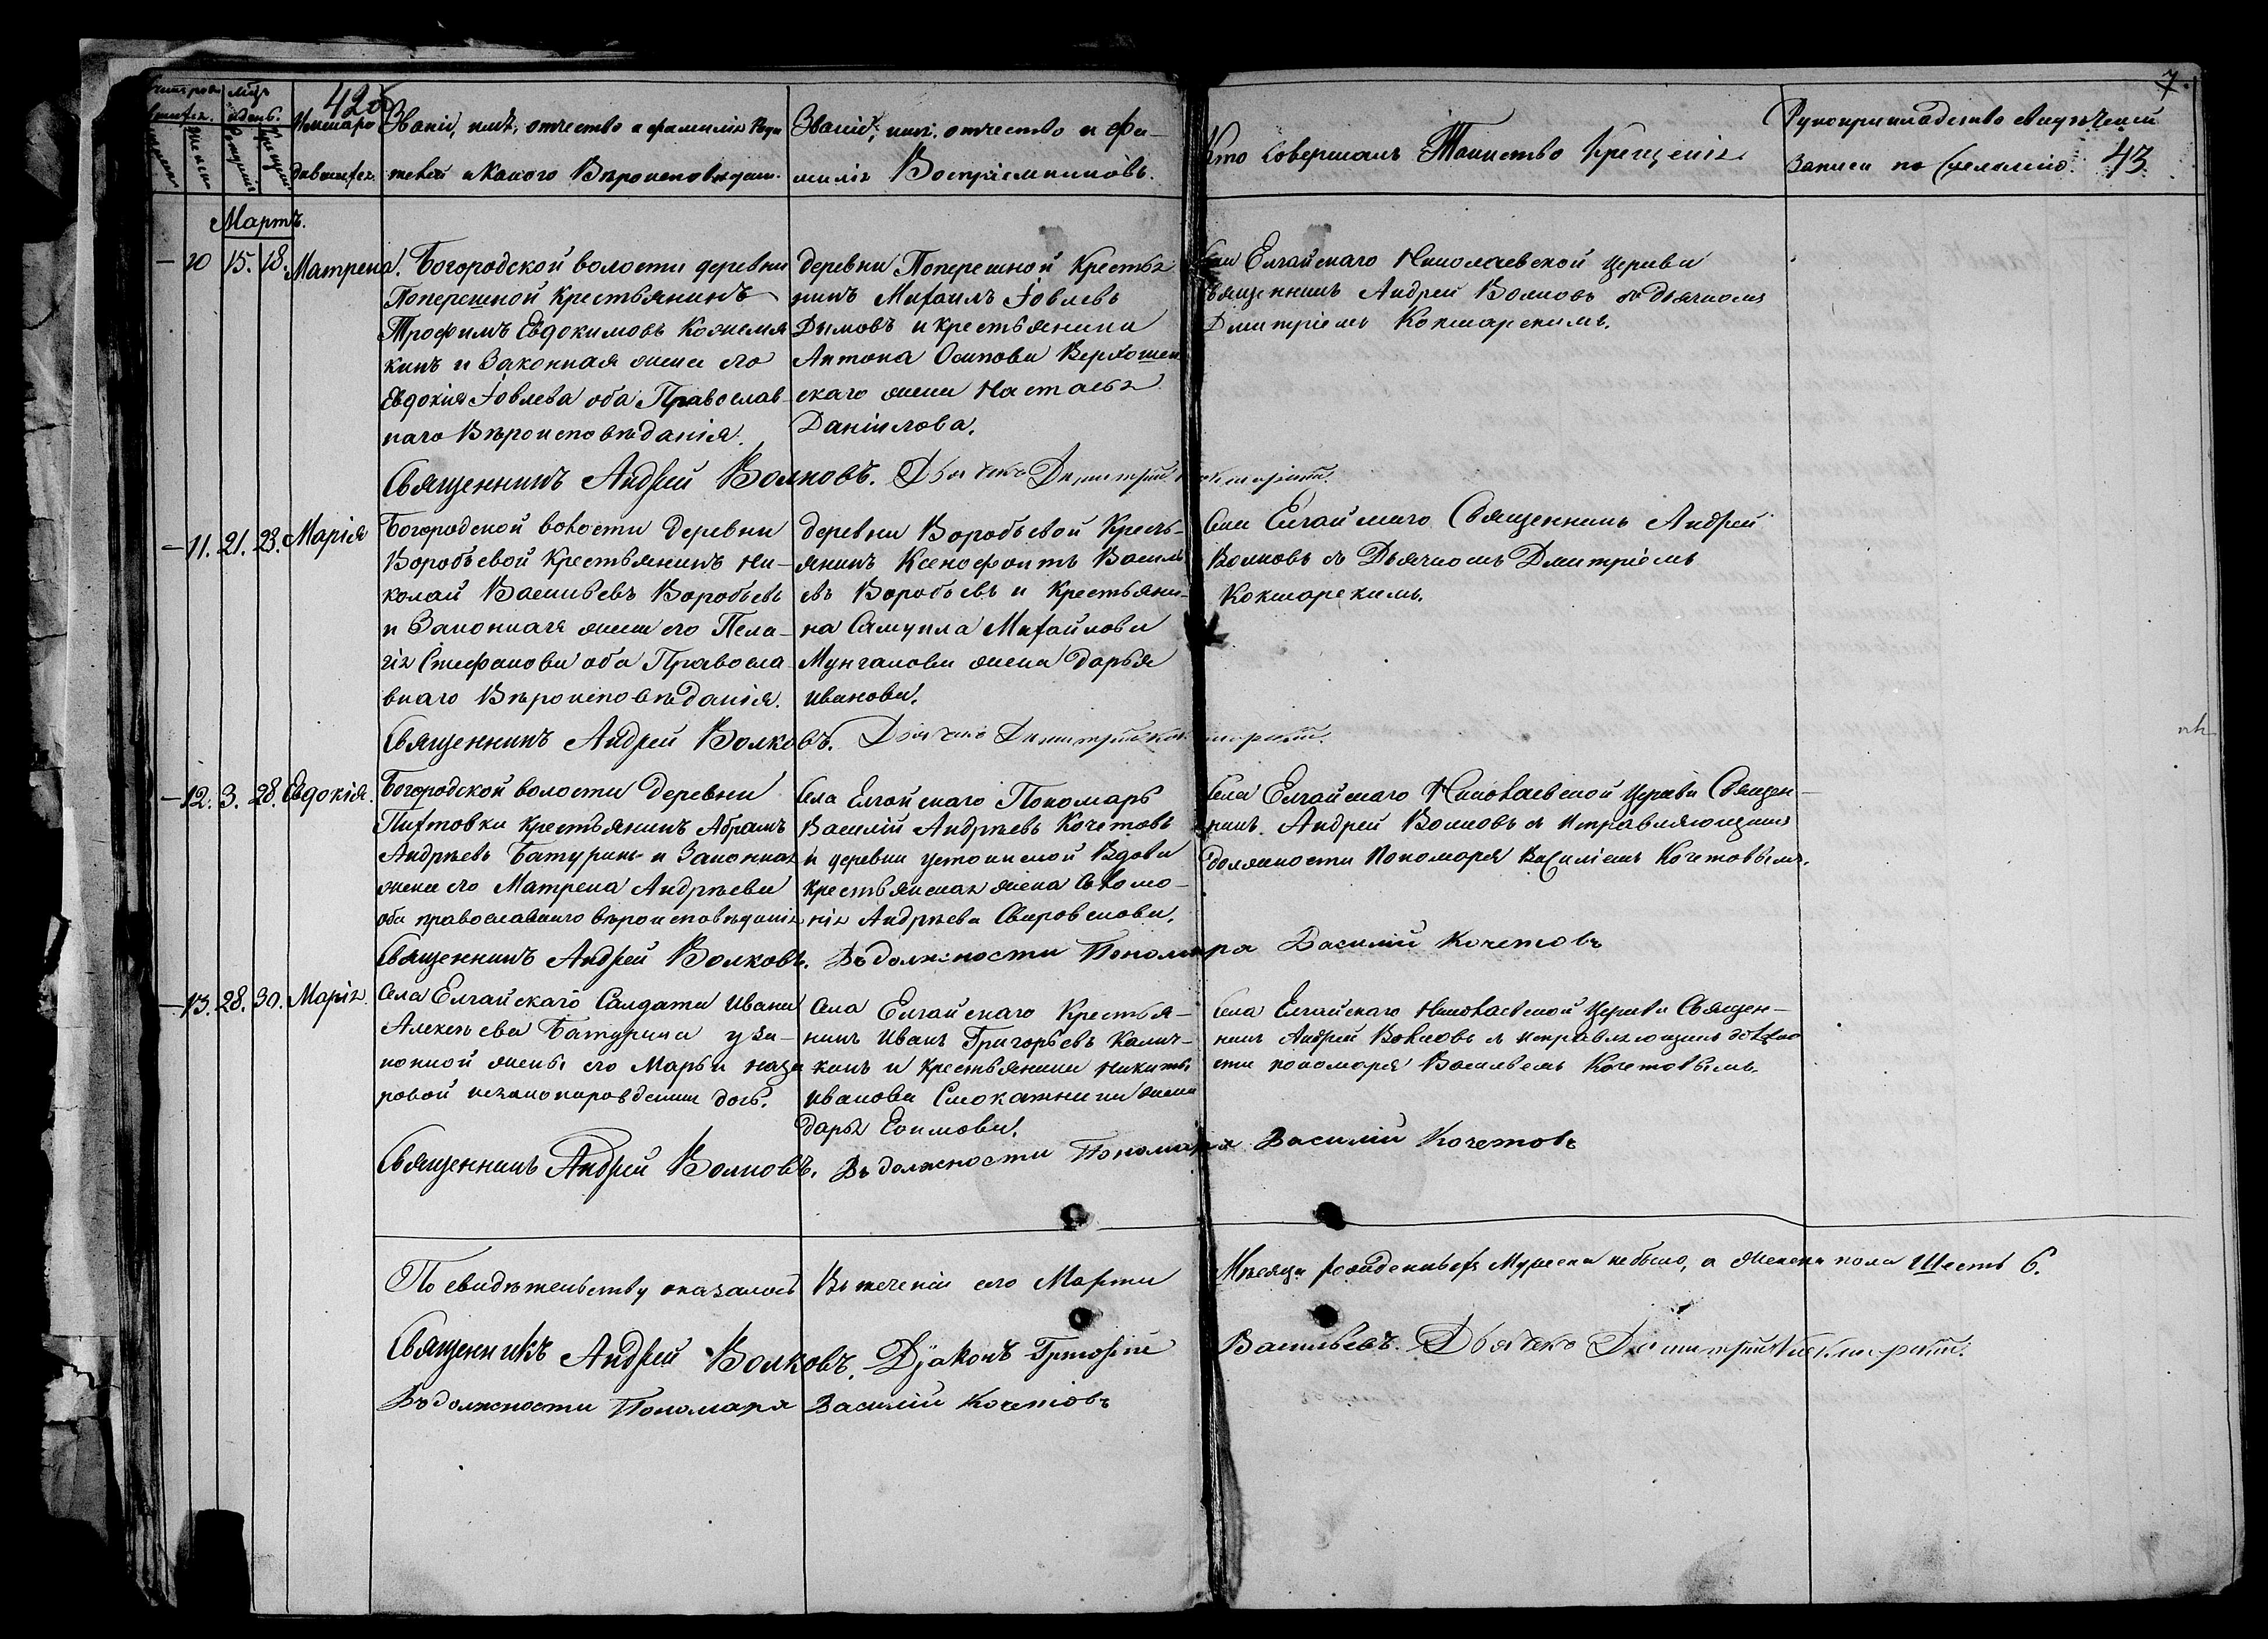 42об
7.
43
Счетъ родившихся.
Мужеска
Женска
мѣсяцъ и день.
Рожденія
Крещенія
Имена родившихся.
Званіе, имя, отчество и фамилія Роди
телей и Какого Вѣроисповѣдан.
Званіе, имя, отчество и фа-
милія Воспріемниковъ.
Кто Совершалъ Таинство Крещенія.
Рукоприкладство свидѣтелей
Записи по желанію.
Мартъ.
— 10 15. 18. Матрена.
Богородской волости деревни
Поперешной Крестьянинъ
Трофимъ Евдокимовъ Кожемя
кинъ и Законная жена его
Евдокия Іовлева оба Православ-
наго Вѣроисповѣданія.
деревни Поперешной Крестья
нинъ Михаилъ Іовлевъ
Дымовъ и крестьянина
Антона Осипова Верхошен
скаго жена Настасья
Даніилова.
Села Елгайскаго Николаевской церкви
Священникъ Андрей Волковъ съ дьячкомъ
Дмитріемъ Кокшарскимъ.
Священникъ Андрей Волковъ. Дьячекъ Димитрий Кокшарский.
— 11. 21. 23. Марія
Богородской волости деревни
Воробьевой Крестьянинъ Ни-
колай Васильевъ Воробьевъ
и Законная жена его Пела-
гія Стефанова оба Правосла-
внаго Вѣроисповѣданія.
деревни Воробьевой Кресть-
янинъ Ксенофонтъ Василь
евъ Воробьевъ и Крестьяни-
на Самуила Михайлова
Мунгалова жена Дарья
Иванова.
Села Елгайскаго Священникъ Андрей
Волковъ съ Дьячкомъ Дмитріемъ
Кокшарскимъ.
Священникъ Андрей Волковъ. Дьячекъ Димитрий Кокшарский.
— 12. 3. 28. Евдокія.
Богородской волости Деревни
Пихтовки крестьянинъ Абрамъ
Андрѣевъ Батуринъ и Законная
жена его Матрена Андрѣева
оба православнаго вѣроисповѣданія
Села Елгайскаго Пономарь
Василій Андрѣевъ Кочетовъ
и деревни Вдова
крестьянская жена Соломо-
нія Андрѣева
Села Елгайскаго Николаевской Церкви Священ-
никъ Андрей Волковъ съ Исправляющимъ
должности Пономаря Василіемъ Кочетовымъ.
Священникъ Андрей Волковъ. Въ должности Пономаря Василий Кочетовъ
— 13. 28. 30. Марія.
Села Елгайскаго Салдата Ивана
Алексѣева Батурина у за-
конной жены его Марьи Наза
ровой незаконнорожденная дочь.
Села Елгайскаго Крестья-
нинъ Иванъ Григорьевъ Калич-
кинъ и Крестьянина Никиты
Иванова жена
Дарья Еоимова.
Села Елгайскаго Николаевской Церкви Священ-
никъ Андрей Волковъ съ исправляющимъ должно
сти пономаря Васильемъ Кочетовымъ.
Священникъ Андрей Волковъ. Въ должности Пономаря Василий Кочетовъ
По свидѣтельству оказалось Въ теченіи сего Марта Мѣсяца рожденныхъ Мужеска не было, а Женска пола Шесть 6.
Священникъ Андрей Волковъ. Дьяконъ Григорий Васильевъ. Дьячекъ Димитрий Кокшарский.
Въ должности Пономаря Василий Кочетовъ